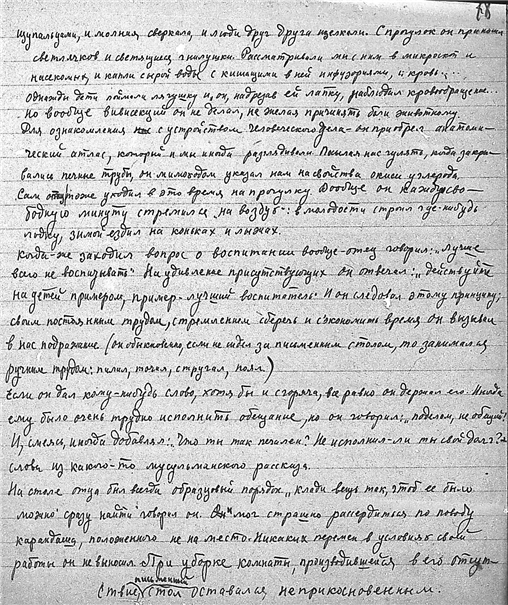 78
щупальцами, и молния сверкала, и люди друг друга щелкали. С прогулок он приносил
светлячков и светящиеся гнилушки. Рассматривали мы с ним в микроскоп и
насекомых, и капли сырой воды с кишащими в ней инфузориями, и кровь...
Однажды дети поймали лягушку и он, надрезав ей лапку, наблюдал кровообращение...
Но вообще вивисекций он не делал, не желая причинять боли животному.
Для ознакомления с устройством человеческого тела - он приобрел анатоми-
ческий атлас, который и мы иногда разглядывали. Посылая нас гулять, когда закры-
вались печные трубы, он мимоходом указал нам на свойства окиси углерода.
Сам отец тоже уходил в это время на прогулку. Вообще он каждую сво-
бодную минуту стремился на воздух: в молодости строил где-нибудь
лодку, зимой ездил на коньках и лыжах.
Когда-же заходил вопрос о воспитании вообще-отец говорил: „Лучше
всего не воспитывать" На удивление присутствующих он отвечал: „действуйте
на детей примером, пример-лучший воспитатель" И он следовал этому принципу;
своим постоянным трудом, стремлением сберечь и сэкономить время он вызывал
в нас подражание (он обыкновенно, если не сидел за письменным столом, то занимался
ручным трудом: пилил, точил, стругал, паял.)
Если он дал кому-нибудь слово, хотя бы и сгоряча, все равно он держал его. Иногда
ему было очень трудно исполнить обещание, но он говорил: „поделом, не обещай"!
И, смеясь, иногда добавлял: „Что ты так печален? Не исполнил-ли ты свой долг?"
слова из какого-то мусульманского рассказа.
На столе отца был всегда образцовый порядок „клади вещь так, чтоб ее было
можно сразу найти" говорил он. Он мог страшно рассердиться по поводу
карандаша, положенного не на место. Никаких перемен в условиях своей
работы он не выносил. При уборке комнаты, производившейся в его отсут-
ствие, письменный стол оставался неприкосновенным.